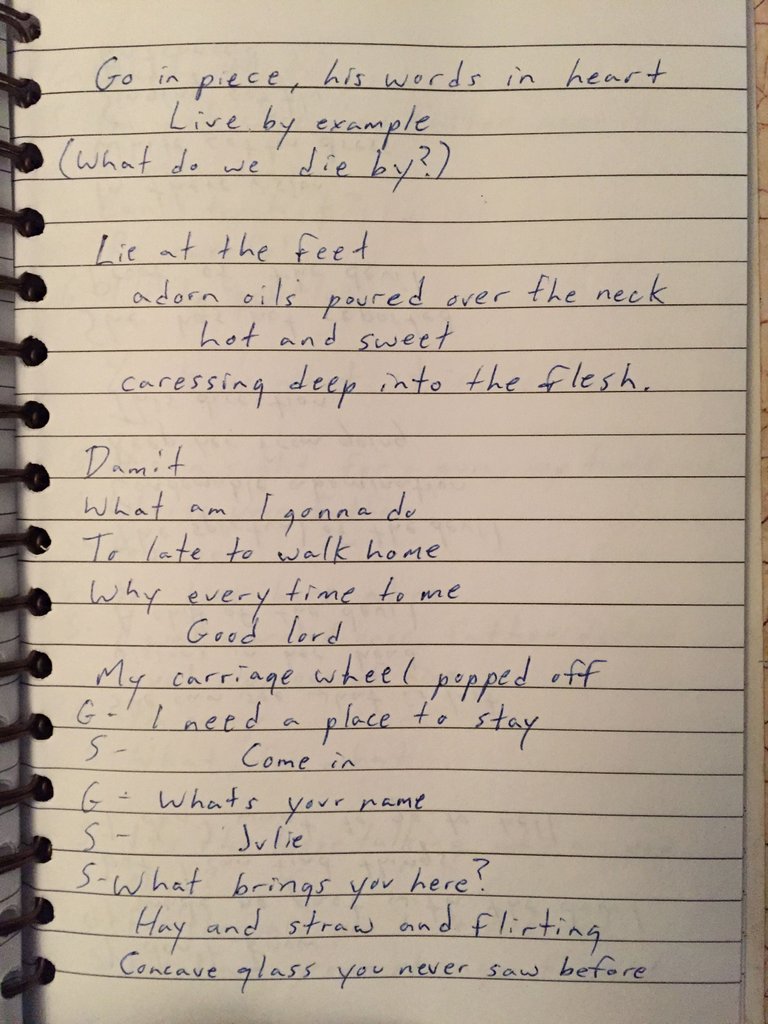 Go in piece, his words in heart
Live by example
(What do we die by?)
Lie at the feet
adorn oils poured over the neck
hot and sweet
caressing deep into the flesh.
Damit
What am I gonna do
To late to walk home
Why every time to me
Good lord
My carriage wheel popped off
G- I need a place to stay
S- Come in
G- Whats your name
S- Julie
S-What brings you here?
Hay and straw and flirting
Concave glass you never saw before